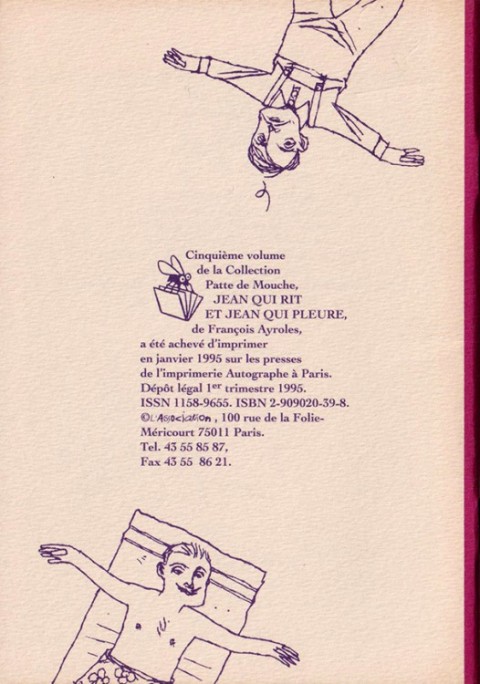 Cinquième volume
de la Collection
Patte de Mouche,
JEAN QUI RIT
ET JEAN QUI PLEURE,
de François Ayroles,
a été achevé d'imprimer
en janvier 1995 sur les presses
de l'imprimerie Autographe à Paris.
Dépôt légal 1er trimestre 1995.
ISSN 1158-9655. ISBN 2-909020-39-8.
©L'Association, 100 rue de la Folie-
Méricourt 75011 Paris.
Tel. 43 55 85 87,
Fax 43 55 86 21.